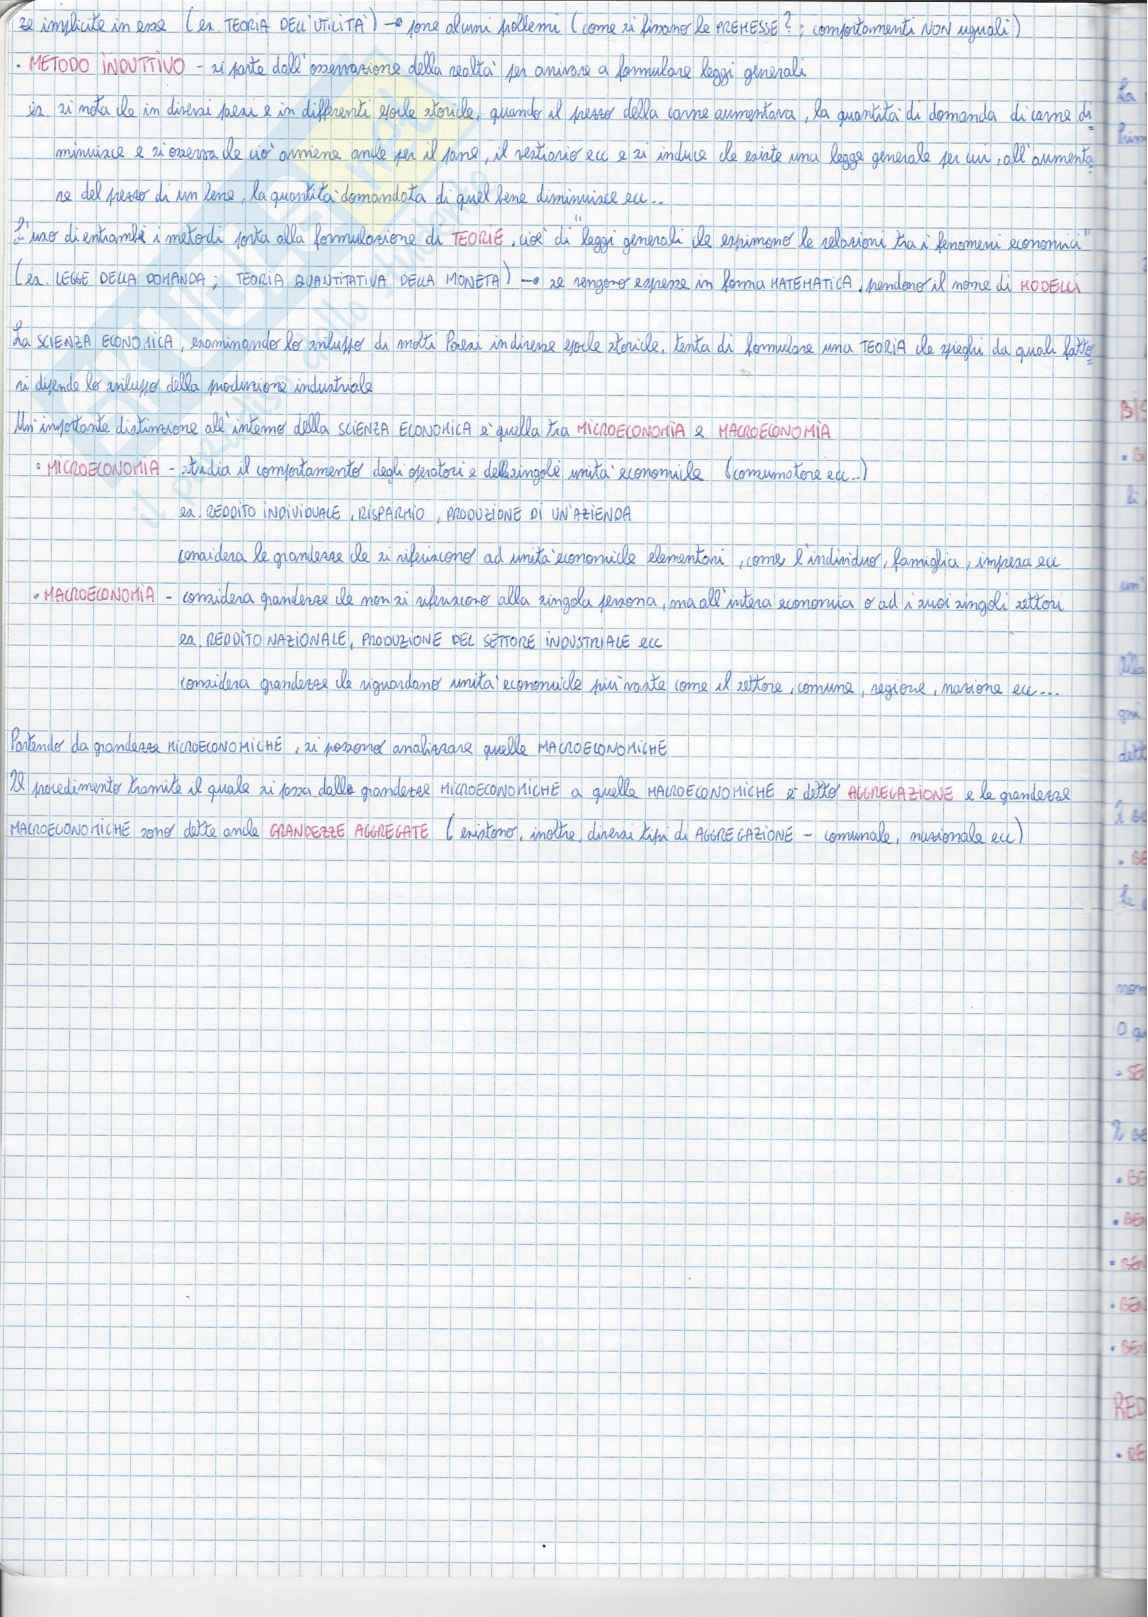 se implicite in esse (es. TEORIA DELL'UTILITÀ) → pone alcuni problemi (come si fissano le PREMESSE?; comportamenti NON uguali)
• METODO INDUTTIVO - si parte dall'osservazione della realtà per arrivare a formulare leggi generali
es. si nota che in diversi paesi e in differenti epoche storiche, quando il prezzo della carne aumentava, la quantità di domanda di carne di=
minuisce e si osserva che ciò avviene anche per il pane, il vestiario ecc e si induce che esiste una legge generale per cui, all'aumenta=
re del prezzo di un bene, la quantità domandata di quel bene diminuisce ecc..
L'uso di entrambi i metodi porta alla formulazione di TEORIE, cioè di "leggi generali che esprimono le relazioni tra i fenomeni economici"
(es. LEGGE DELLA DOMANDA; TEORIA QUANTITATIVA DELLA MONETA) → se vengono espresse in forma MATEMATICA, prendono il nome di MODELLI
La SCIENZA ECONOMICA, esaminando lo sviluppo di molti Paesi in diverse epoche storiche, tenta di formulare una TEORIA che spieghi da quali fatto=
ri dipende lo sviluppo della produzione industriale
Un'importante distinzione all'interno della SCIENZA ECONOMICA è quella tra MICROECONOMIA e MACROECONOMIA
• MICROECONOMIA - studia il comportamento degli operatori e delle singole unità economiche (consumatore ecc..)
es. REDDITO INDIVIDUALE, RISPARMIO, PRODUZIONE DI UN'AZIENDA
considera le grandezze che si riferiscono ad unità economiche elementari, come l'individuo, famiglia, impresa ecc
• MACROECONOMIA - considera grandezze che non si riferiscono alla singola persona, ma all'intera economia o ad i suoi singoli settori
es. REDDITO NAZIONALE, PRODUZIONE DEL SETTORE INDUSTRIALE ecc
considera grandezze che riguardano unità economiche più vaste come il settore, comune, regione, nazione ecc...
Partendo da grandezze MICROECONOMICHE, si possono analizzare quelle MACROECONOMICHE
Il procedimento tramite il quale si passa dalle grandezze MICROECONOMICHE a quelle MACROECONOMICHE è detto AGGREGAZIONE e le grandezze
MACROECONOMICHE sono dette anche GRANDEZZE AGGREGATE (esistono, inoltre, diversi tipi di AGGREGAZIONE - comunale, nazionale ecc)